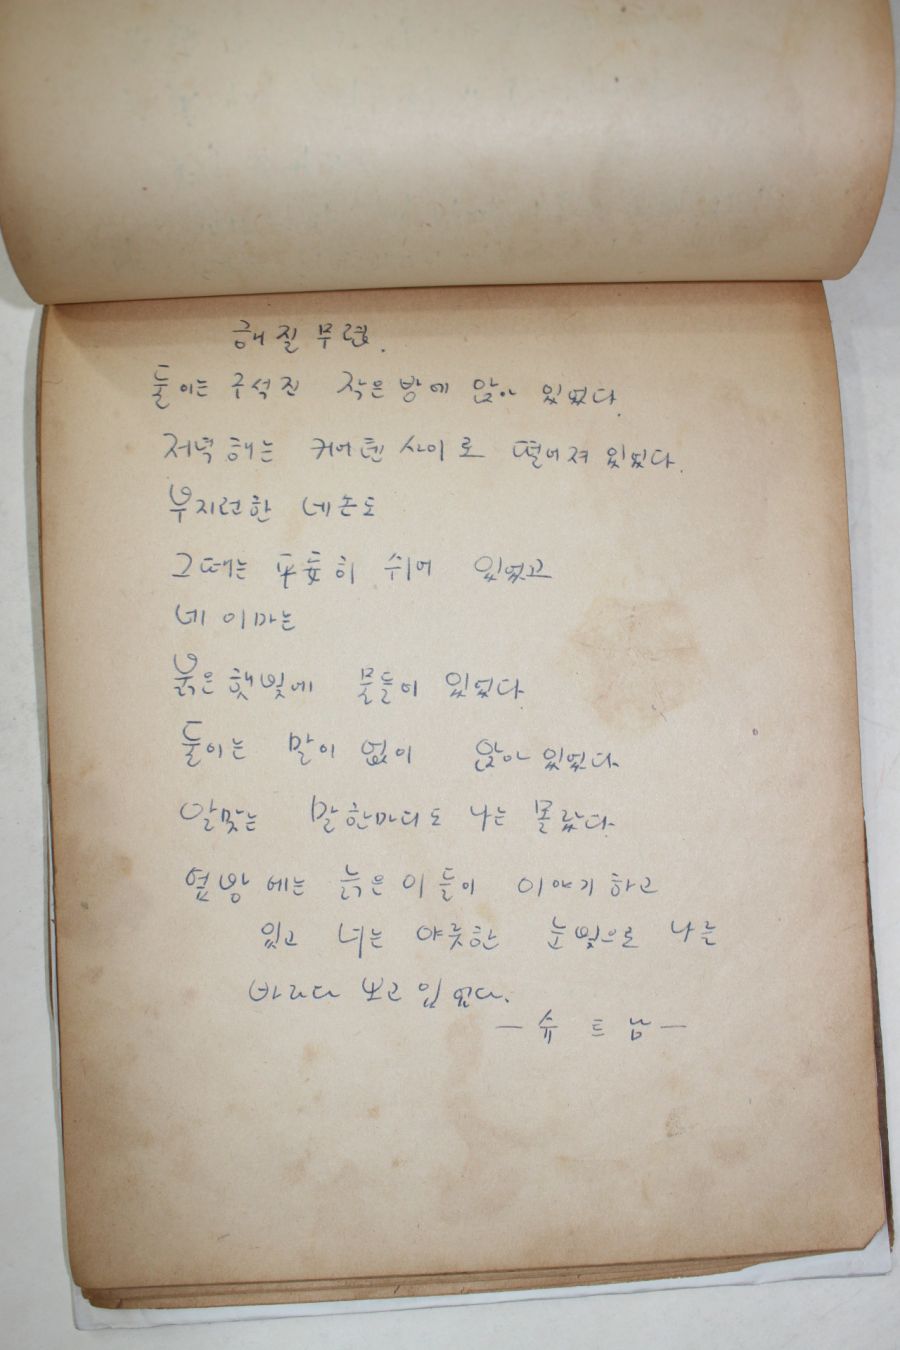 해질 무렵.
둘이는 구석진 작은 방에 앉아 있었다.
저녁 해는 커어텐 사이로 떨어져 있었다.
부지런한 네 손도
그때는 平安히 쉬어 있었고
네 이마는
붉은 햇빛에 물들어 있었다
둘이는 말이 없이 앉아 있었다
알맞는 말 한마디도 나는 몰랐다
옆방에는 늙은이들이 이야기 하고
있고 너는 야릇한 눈빛으로 나를
바라다 보고 있었다.
— 슈트 —